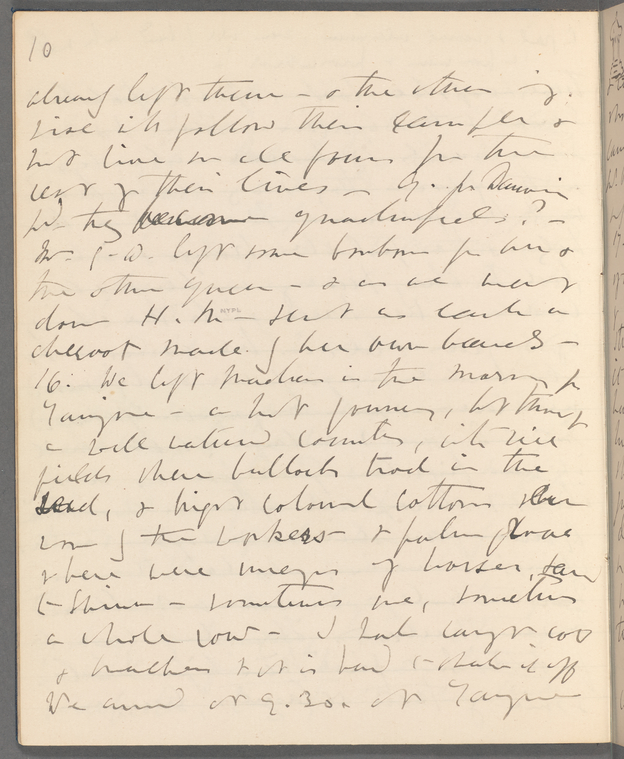 10
already left them - & the others
will follow their example &
not live on all fours for the
rest of their lives -
they become quadrupeds? -
Mr. G-D. left some bonbons for her &
the other Queen - & as we went
down H.M. - sent us each a
cheroot made by her own hands -
16. We left Madura in the morning for
Tanjore - a hot journey, but through
a well watered country, with rice
fields where bullocks trod in the
& bright coloured cottons
worn by the workers & palm groves
where were images of horses,
sometimes one, sometimes
a whole row - I had caught cold
& it is hard to shake it off
We arrived at 9.30. at Tanjore